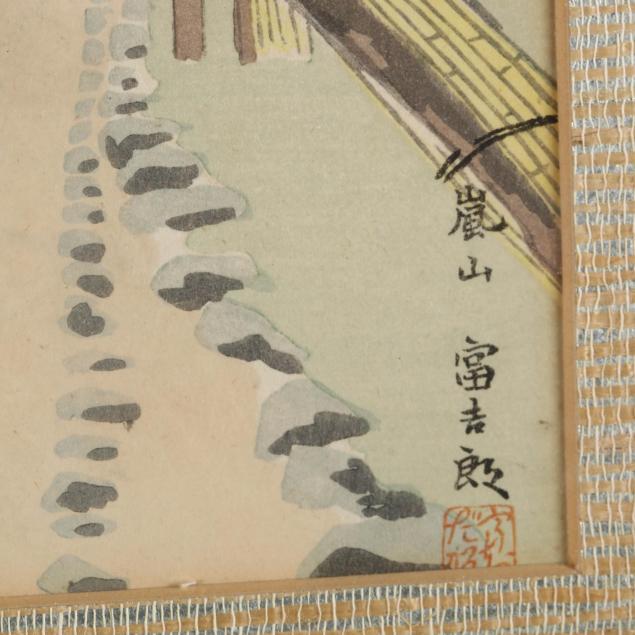 嵐山
富吉郎